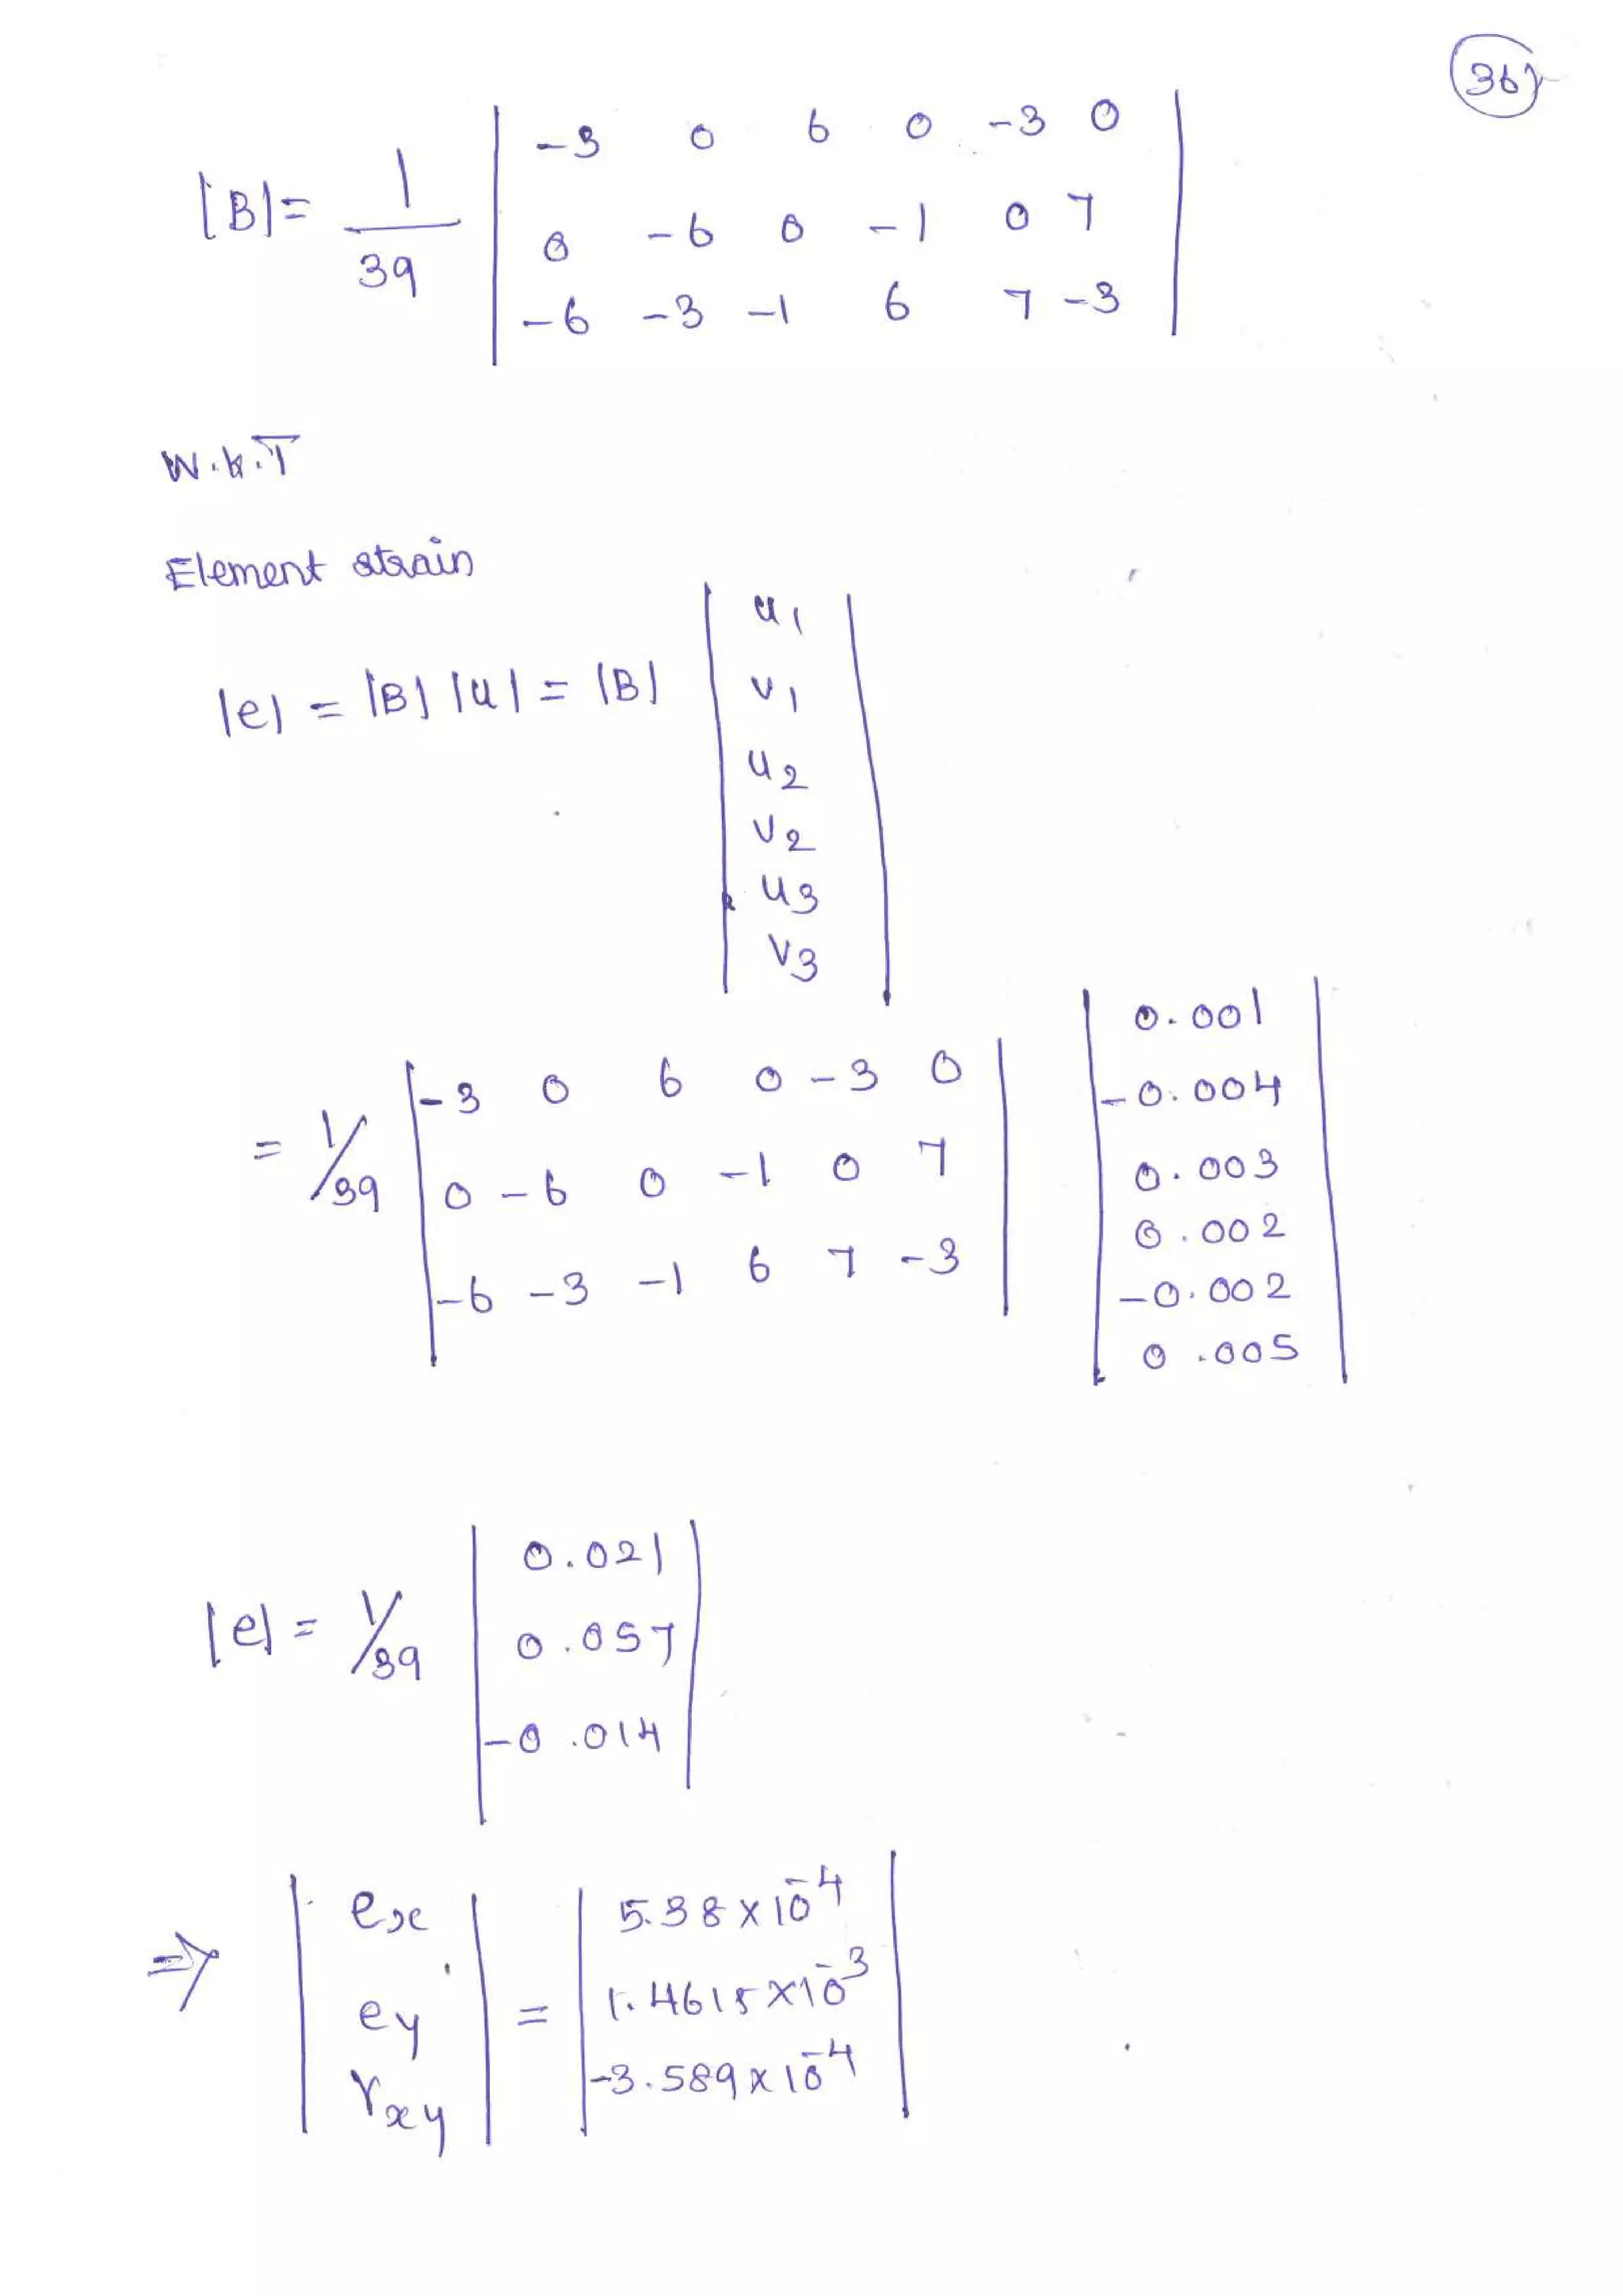 36)
-3 0 6 0 -3 0
|B| = 1/39 0 -6 0 -1 0 7
-6 -3 -1 6 7 -3
W.K.T
Element strain
|e| = |B| |u| = |B|
u1
v1
u2
v2
u3
v3
= 1/39
-3 0 6 0 -3 0
0 -6 0 -1 0 7
-6 -3 -1 6 7 -3
0.001
-0.004
0.003
0.002
-0.002
0.005
|e| = 1/39
0.021
0.057
-0.014
⇒
ex
ey
γxy
=
5.38 × 10^-4
1.4615 × 10^-3
-3.589 × 10^-4